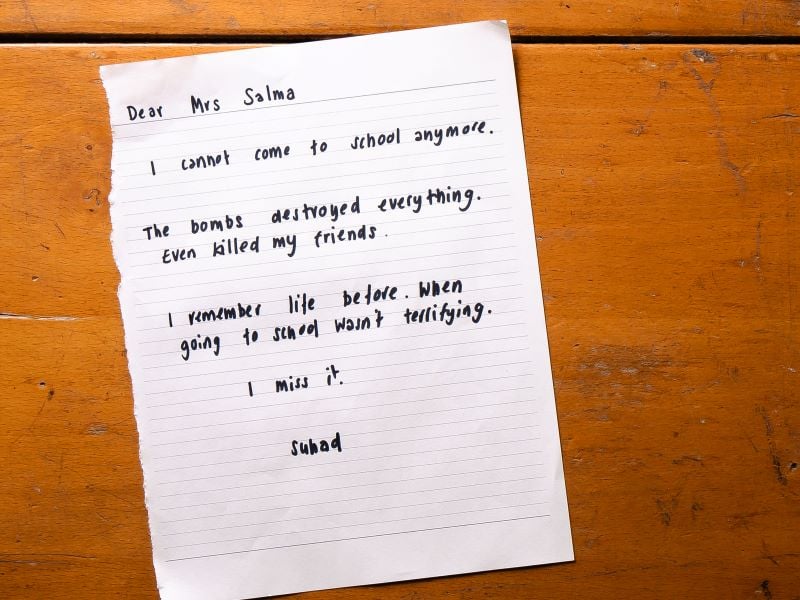 Dear Mrs Salma
I cannot come to school anymore.
The bombs destroyed everything.
Even killed my friends.
I remember life before. When
going to school wasn't terrifying.
I miss it.
Suhad